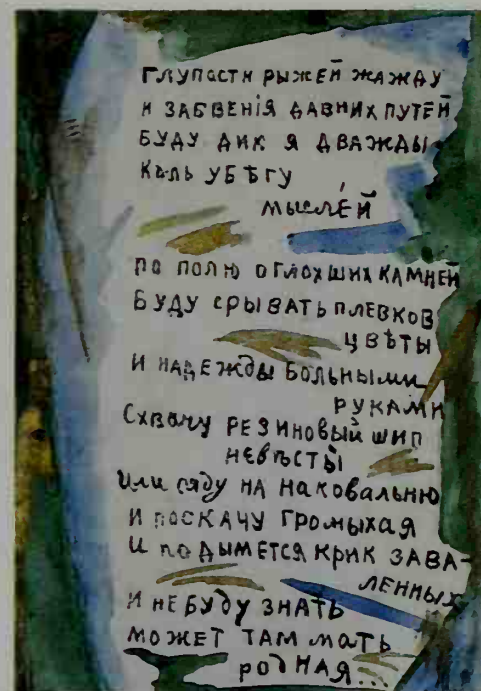 ГЛУПОСТИ РЫЖЕЙ ЖАЖДУ
И ЗАБВЕНІЯ ДАВНИХ ПУТЕЙ
БУДУ ДИК Я ДВАЖДЫ
КОЛЬ УБѢГУ
МЫСЛЕ́Й
ПО ПОЛЮ ОГЛОХШИХ КАМНЕЙ
БУДУ СРЫВАТЬ ПЛЕВКОВ
ЦВѢТЫ
И НАДЕЖДЫ БОЛЬНЫМИ
РУКАМИ
Схвачу РЕЗИНОВЫЙ ШИП
НЕВѢСТЫ
Или сяду НА НАКОВАЛЬНЮ
И ПОСКАЧУ ГРОМЫХАЯ
И ПОДЫМЕТСЯ КРИК ЗАВА-
ЛЕННЫХ
И НЕ БУДУ ЗНАТЬ
МОЖЕТ ТАМ МАТЬ
РОДНАЯ...